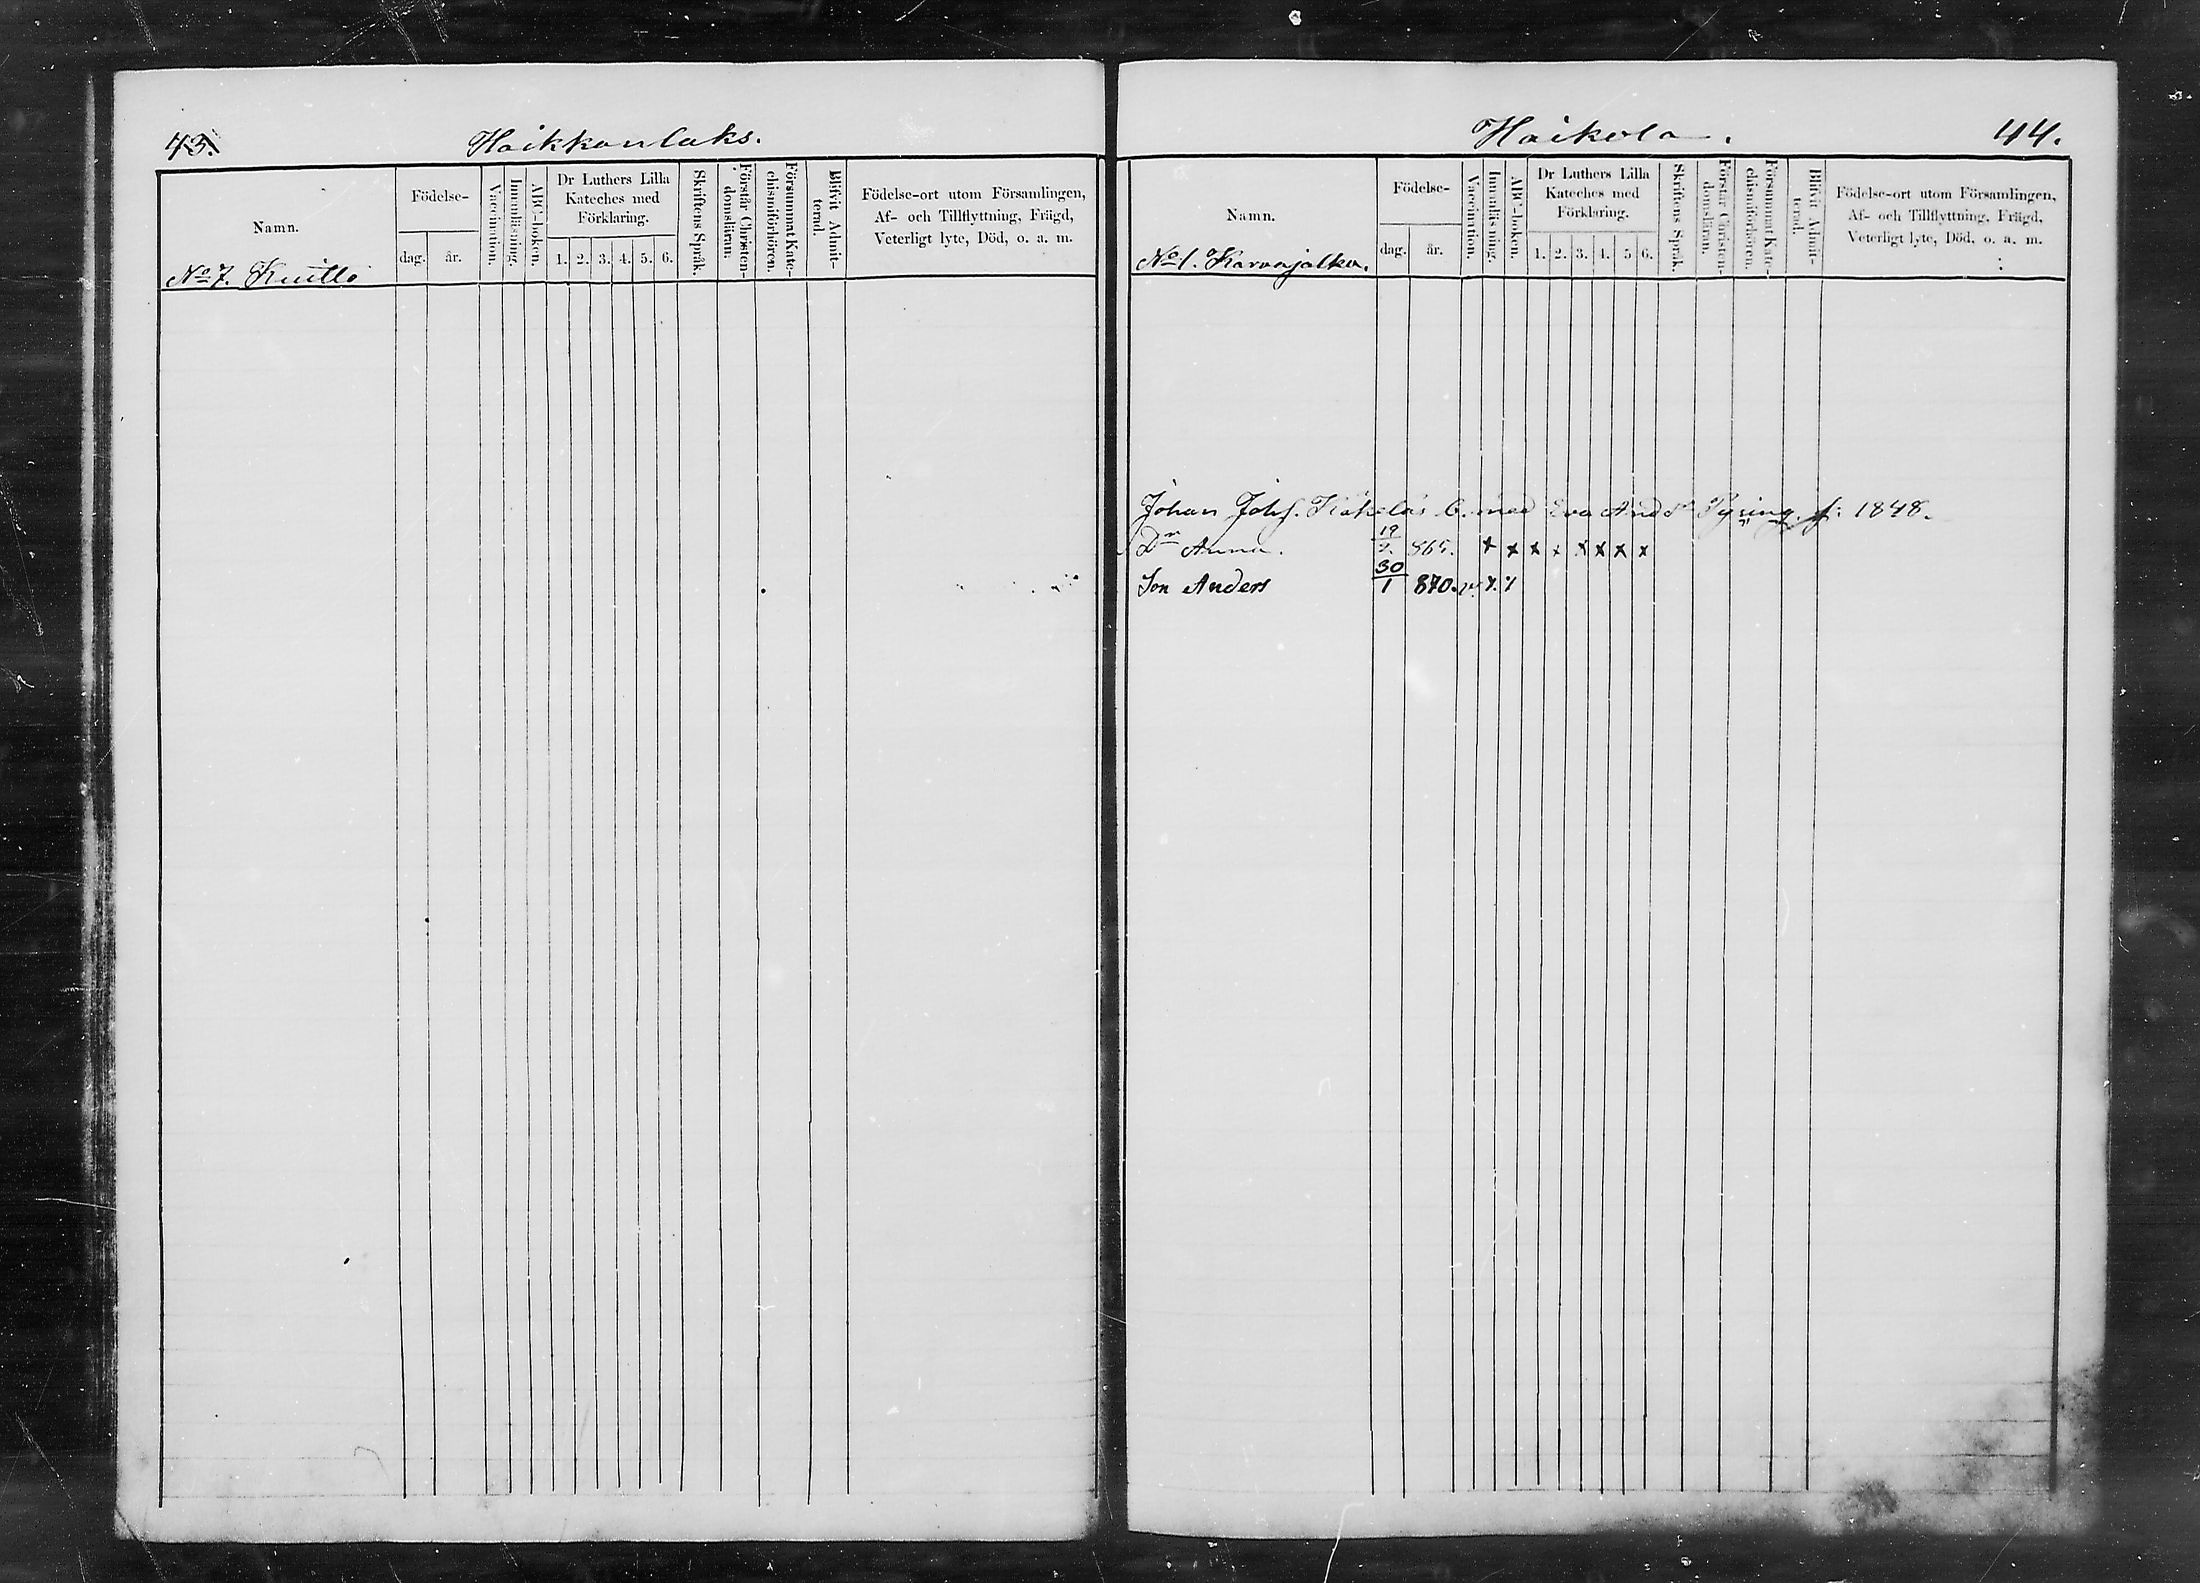 43.
Haikkanlaks.
Namn.
Födelse-
dag. år.
Vaccination.
Innanläsning.
ABC-boken.
Dr Luthers Lilla
Kateches med
Förklaring.
1. 2. 3. 4. 5. 6.
Skriftens Språk.
Förstår Christen-
domsläran.
Försummat Kate-
chismiförhören.
Blifvit Admit-
terad.
Födelse-ort utom Församlingen,
Af- och Tillflyttning, Frägd,
Veterligt lyte, Död, o. a. m.
No 7. Kuitto
Haikola.
44.
Namn.
Födelse-
dag. år.
Vaccination.
Innanläsning.
ABC-boken.
Dr Luthers Lilla
Kateches med
Förklaring.
1. 2. 3. 4. 5 6.
Skriftens Språk.
Förstår Christen-
domsläran.
Försummat Kate-
chismiförhören.
Blifvit Admit-
terad.
Födelse-ort utom Församlingen,
Af- och Tillflyttning, Frägd,
Veterligt lyte, Död, o. a. m.
No 1. Karvajalka.
Johan Johs. med Eva And. f. 1848.
Dr Anna. 19/2. 865. x x x x x x x x
Son Anders 30/1 870. v. x x